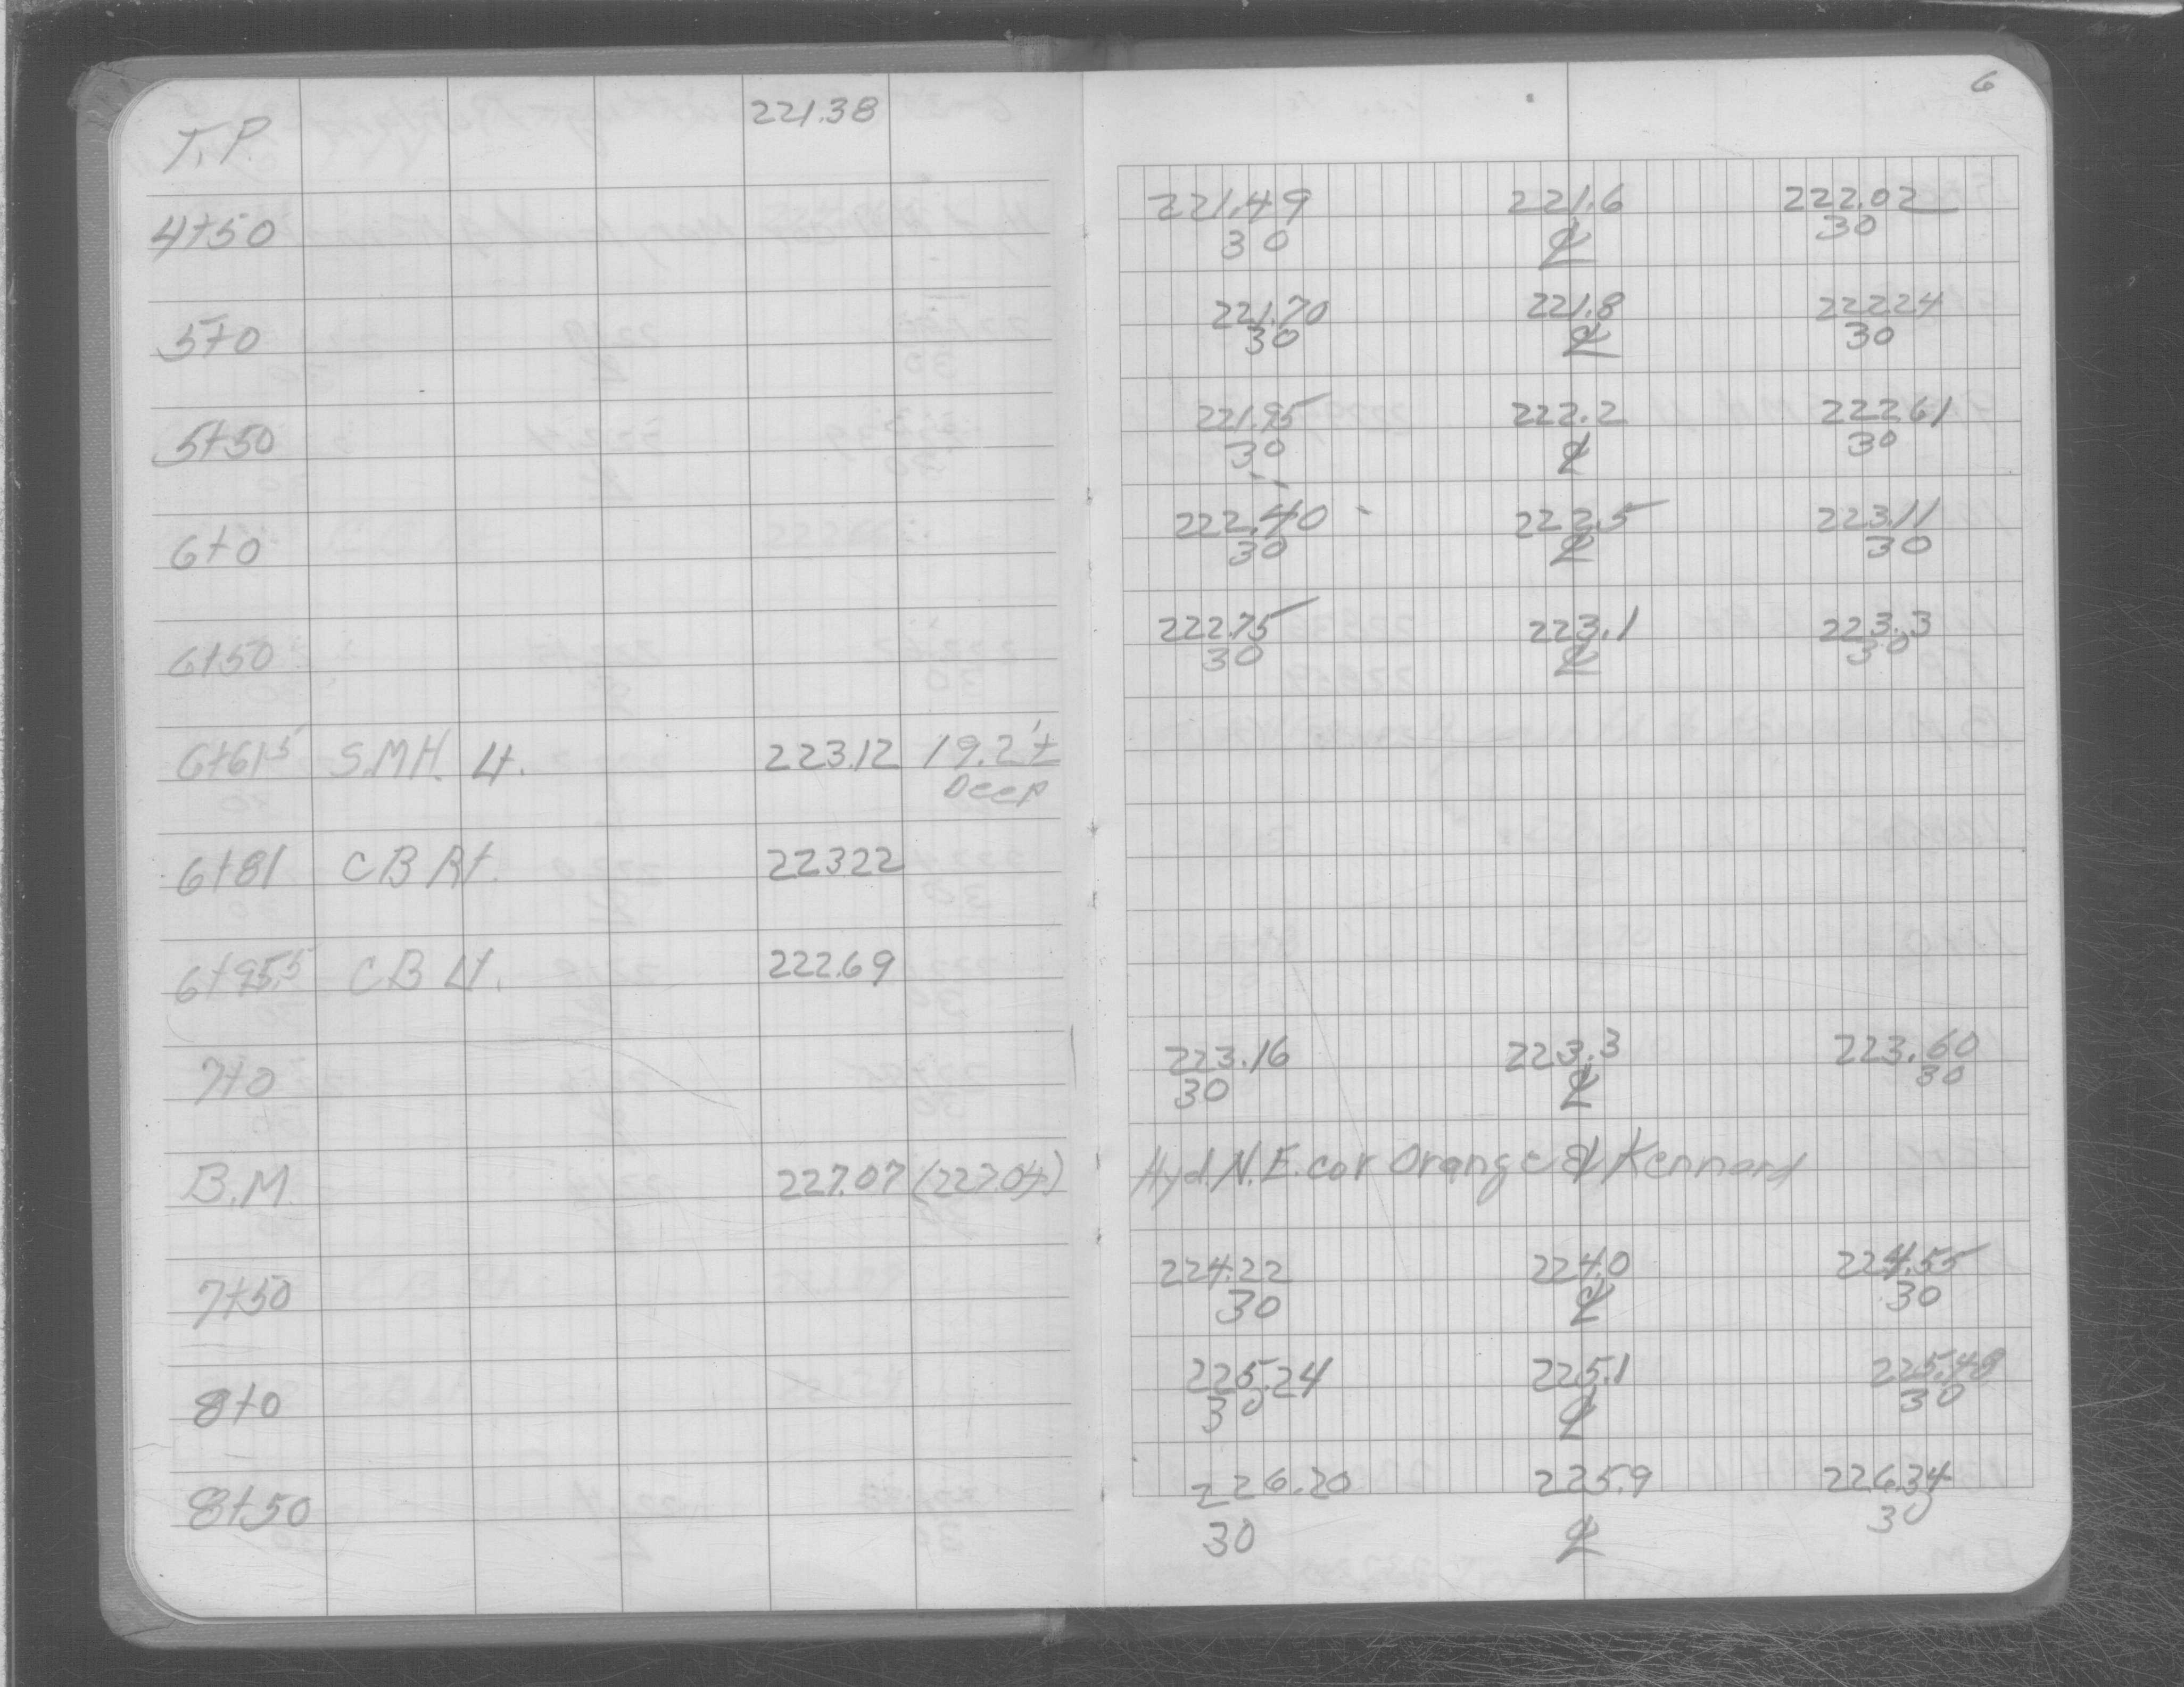 6
T.P. 221.38
4+50 221.49 221.6 222.02
30 ℄ 30
5+0 221.70 221.8 222.24
30 ℄ 30
5+50 221.95 222.2 222.61
30 ℄ 30
6+0 222.40 222.5 223.11
30 ℄ 30
6+50 222.75 223.1 223.3
30 ℄ 30
6+61.5 S.M.H. Lt. 223.12 19.2'±
Deep
6+81 C B Rt. 223.22
6+95.5 C B Lt. 222.69
7+0 223.16 223.3 223.60
30 ℄ 30
B.M. 227.07 (227.04) Hyd. N.E. cor Orange & Kennard
7+50 224.22 224.0 224.55
30 ℄ 30
8+0 225.24 225.1 225.48
30 ℄ 30
8+50 226.20 225.9 226.34
30 ℄ 30